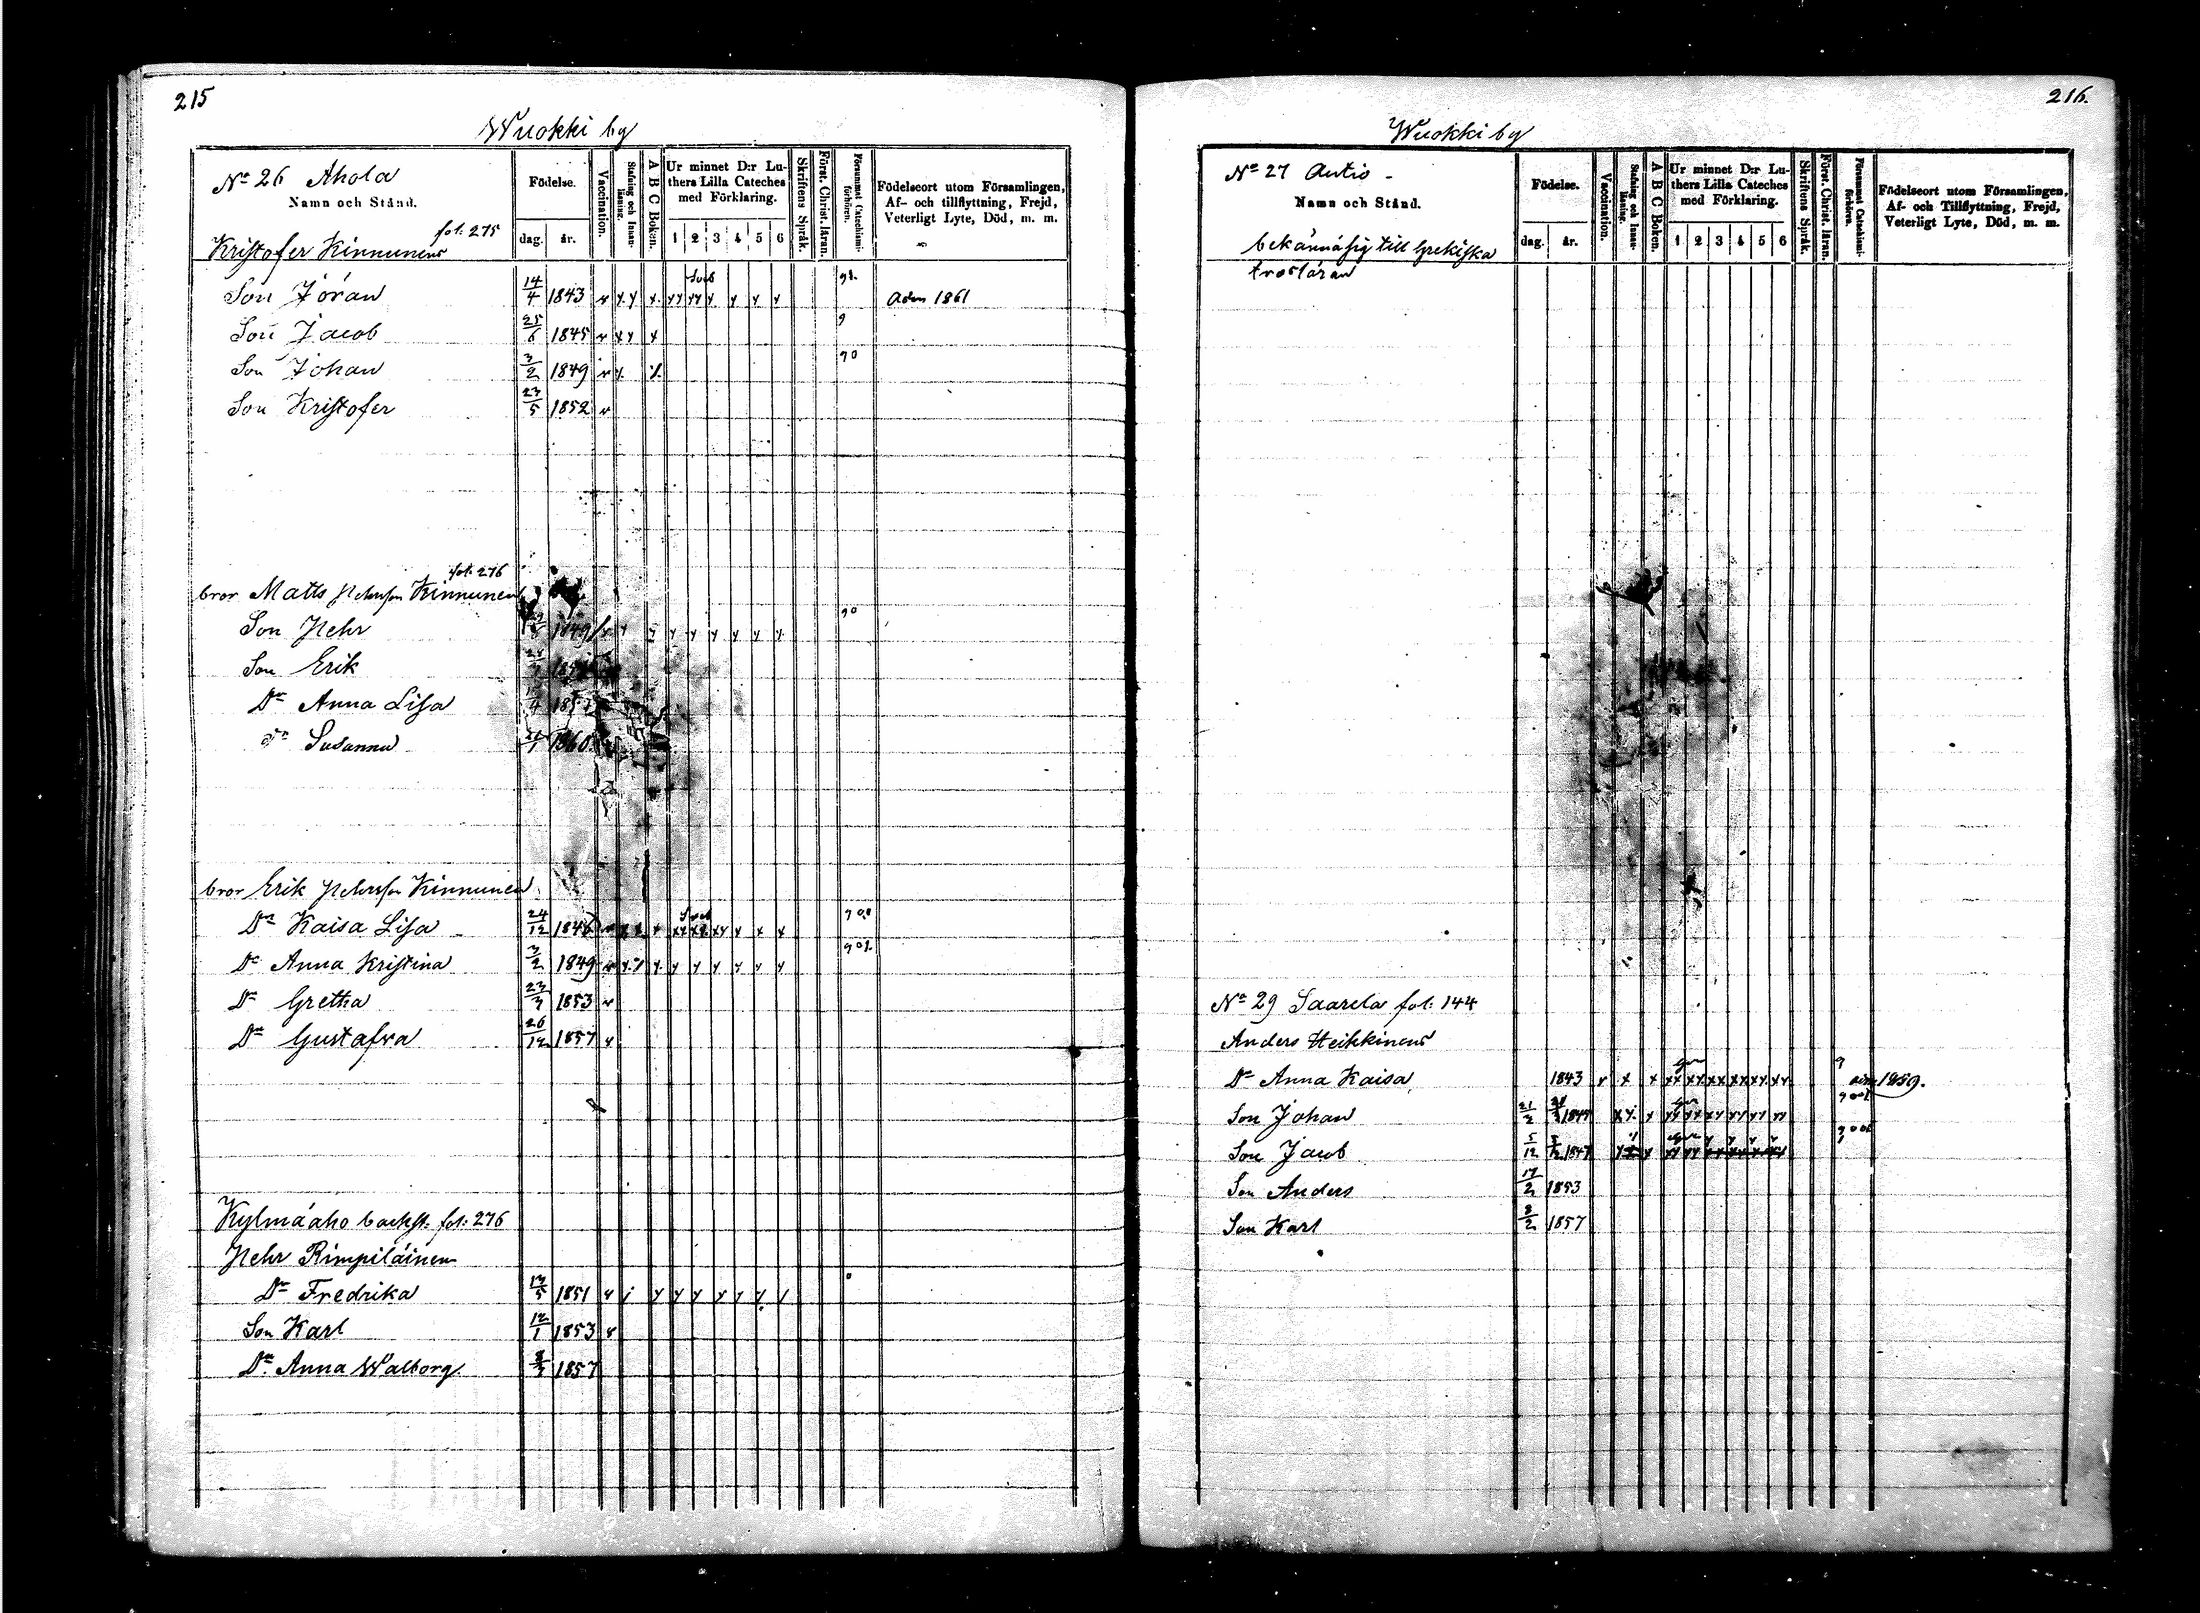 215
Wuokki by
No 26 Ahola
Namn och Stånd.
Födelse.
dag. år.
Vaccination.
Stafning och Innanläsning.
A B C Boken.
Ur minnet D:r Luthers Lilla Cateches med Förklaring.
1 2 3 4 5 6
Skriftens Språk.
Först. Christ. läran.
Försummat Catechismiförhören.
Födelseort utom Församlingen,
Af- och tillflyttning, Frejd,
Veterligt Lyte, Död, m. m.
fol. 275
Kristofer Kinnunens
Son Jöran 14/4 1843 Adm 1861
Son Jacob 25/6 1845
Son Johan 3/2 1849
Son Kristofer 23/5 1852
fol. 276
bror Matts Pehrsson Kinnunen
Son Pehr 1849
Son Erik
Dr Anna Lisa
Dr Susanna 1860
bror Erik Pehrsson Kinnunen
Dr Kaisa Lisa 24/12 1846
Dr Anna Kristina 3/2 1849
Dr Gretha 1853
Dr Gustafva 26/12 1857
Kylmäaho backst. fol: 276
Pehr Rimpiläinen
Dr Fredrika 13/5 1851
Son Karl 12/1 1853
Dr Anna Walborg 1857
216.
Wuokki by
No 27 Autio -
Namn och Stånd.
Födelse.
dag. år.
Vaccination.
Stafning och Innanläsning.
A B C Boken.
Ur minnet D:r Luthers Lilla Cateches med Förklaring.
1 2 3 4 5 6
Skriftens Språk.
Först. Christ. läran.
Försummat Catechismiförhören.
Födelseort utom Församlingen,
Af- och Tillflyttning, Frejd,
Veterligt Lyte, Död, m. m.
bekänna sig till Grekiska
trosläran
No 29 Saarela fol: 144
Anders Heikkinens
Dr Anna Kaisa 1843 1859.
Son Johan 21/2
Son Jacob 5/12 1847
Son Anders 17/2 1853
Son Karl 8/2 1857